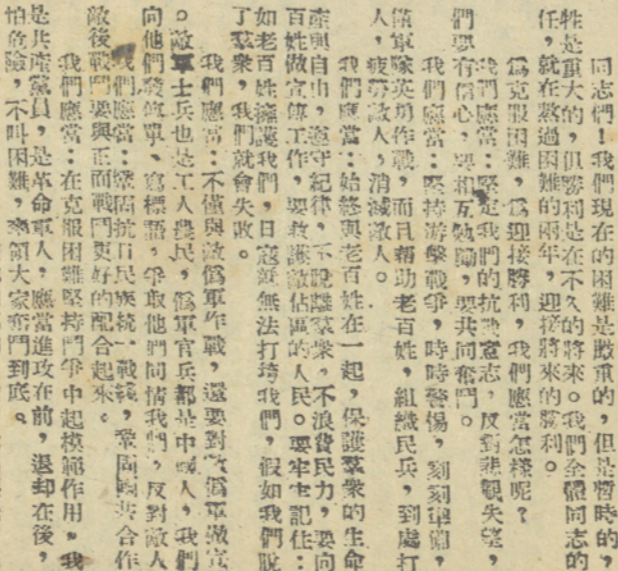 同志們！我們現在的困難是嚴重的，但是暫時的，
牲是重大的，但勝利是在不久的將來。我們全體同志的
任，就在熬過困難的兩年，迎接將來的勝利。
爲克服困難，爲迎接勝利，我們應當怎樣呢？
我們應當：堅定我們的抗戰意志，反對悲觀失望，
們要有信心，要相互勉勵，要共同奮鬥。
我們應當：堅持游擊戰爭，時時警惕，刻刻準備，
僞軍隊英勇作戰，而且幫助老百姓，組織民兵，到處打
人，疲勞敵人，消滅敵人。
我們應當：始終與老百姓在一起，保護羣衆的生命
產與自由，遵守紀律，不脫離羣衆，不浪費民力，要向
百姓做宣傳工作，要救護敵佔區的人民。要牢牢記住：
如老百姓擁護我們，日寇就無法打垮我們，假如我們脫
了羣衆，我們就會失敗。
我們應當：不僅與敵僞軍作戰，還要對敵僞軍做宣
。敵軍士兵也是工人農民，僞軍官兵都是中國人，我們
向他們發傳單、寫標語，爭取他們同情我們，反對敵人
我們應當：鞏固抗日民族統一戰綫，鞏固國共合作
敵後戰鬥要與正面戰鬥更好的配合起來。
我們應當：在克服困難堅持鬥爭中起模範作用，我
是共產黨員，是革命軍人，應當進攻在前，退却在後，
怕危險，不叫困難，率領大家奮鬥到底。